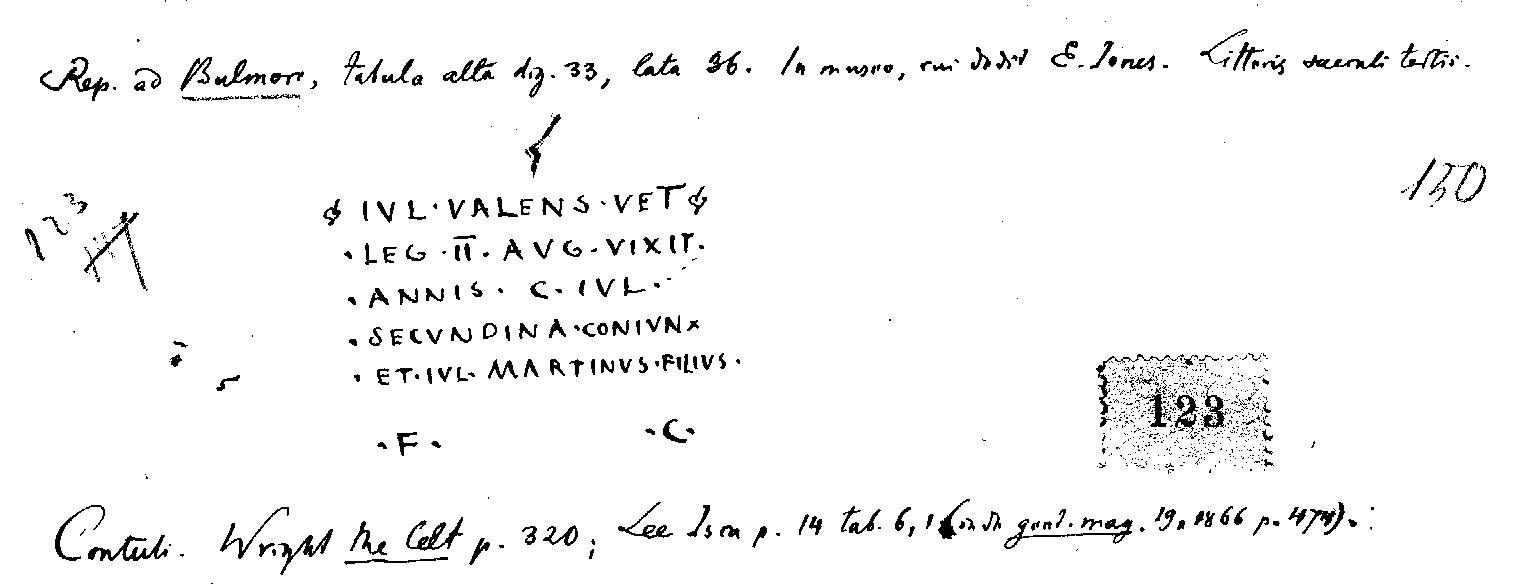 Rep. ad Bulmore, tabula alta dig. 33, lata 36. In museo, cui dedit E. Jones. Litteris saeculi tertii.
123
150
IVL·VALENS·VET
·LEG·II·AVG·VIXIT·
·ANNIS·C·IVL·
·SECVNDINA·CONIVNX
·ET·IVL·MARTINVS·FILIVS·
·F· ·C·
123
Contuli. Wright the Celt p. 320; Lee Isca p. 14 tab. 6, 1 (inde gent. mag. 19, 1866 p. 474).